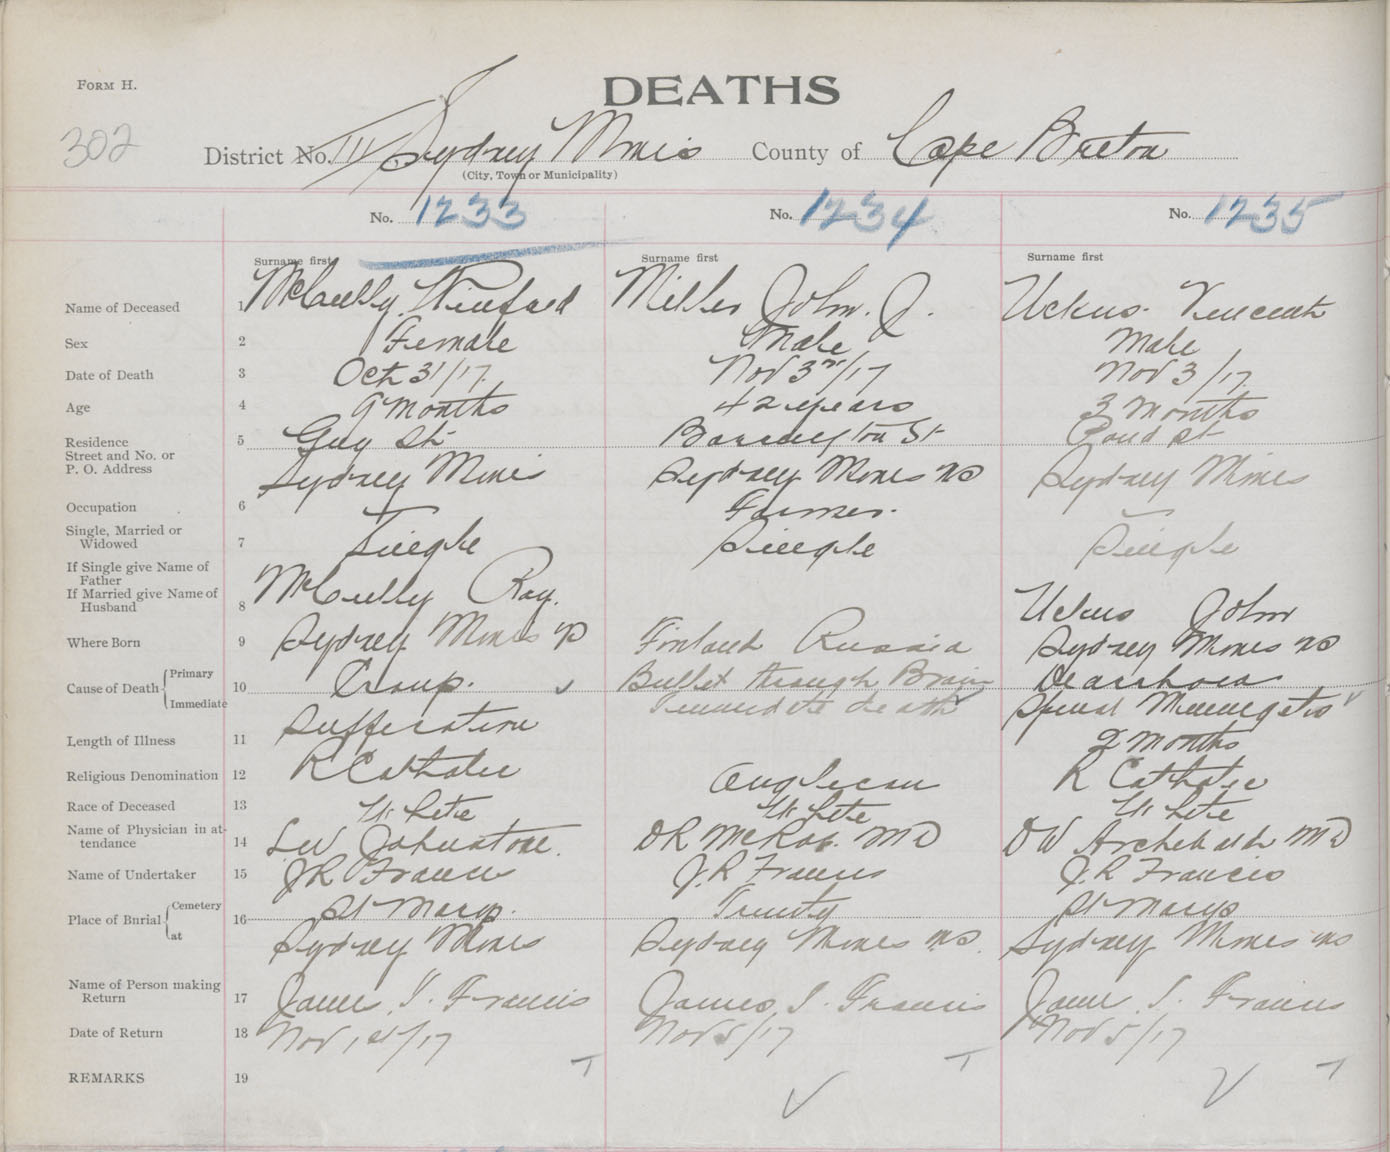 FORM H.
DEATHS
302
District No. Sydney Mines County of Cape Breton
(City, Town or Municipality)
No. 1233
No. 1234
No. 1235
Surname first
Surname first
Surname first
Name of Deceased 1 McCully, Winifred
Miller John. J.
Uckus. Vincent
Sex 2 Female
Male
Male
Date of Death 3 Oct 31/17.
Nov 3rd/17
Nov 3/17
Age 4 9 months
42 years
3 months
Residence
Street and No. or
P. O. Address
5 Guy St
Sydney Mines
Barrington St
Sydney Mines NS
Pond St
Sydney Mines
Occupation 6
Farmer.
Single, Married or
Widowed
7 Single
Single
Single
If Single give Name of
Father
If Married give Name of
Husband
8 McCully Roy.
Uckus John
Where Born 9 Sydney Mines
Finland Russia
Sydney Mines NS
Cause of Death Primary
Immediate
10 Croup.
Suffocation
Bullet through Brain
Immediate death
Diarrhoea
Spinal Meningitis
Length of Illness 11
2 months
Religious Denomination 12 R Catholic
Anglican
R Catholic
Race of Deceased 13 White
White
White
Name of Physician in at-
tendance
14 LW Johnstone.
DR McRae. MD
DW Archibald MD
Name of Undertaker 15 JR Francis
J.R Francis
J.R Francis
Place of Burial Cemetery
at
16 St Marys.
Sydney Mines
Trinity
Sydney Mines NS.
St Marys
Sydney Mines NS
Name of Person making
Return
17 James J. Francis
James J. Francis
James J. Francis
Date of Return 18 Nov 1st/17
Nov 5/17
Nov 5/17
REMARKS 19
T
T
T